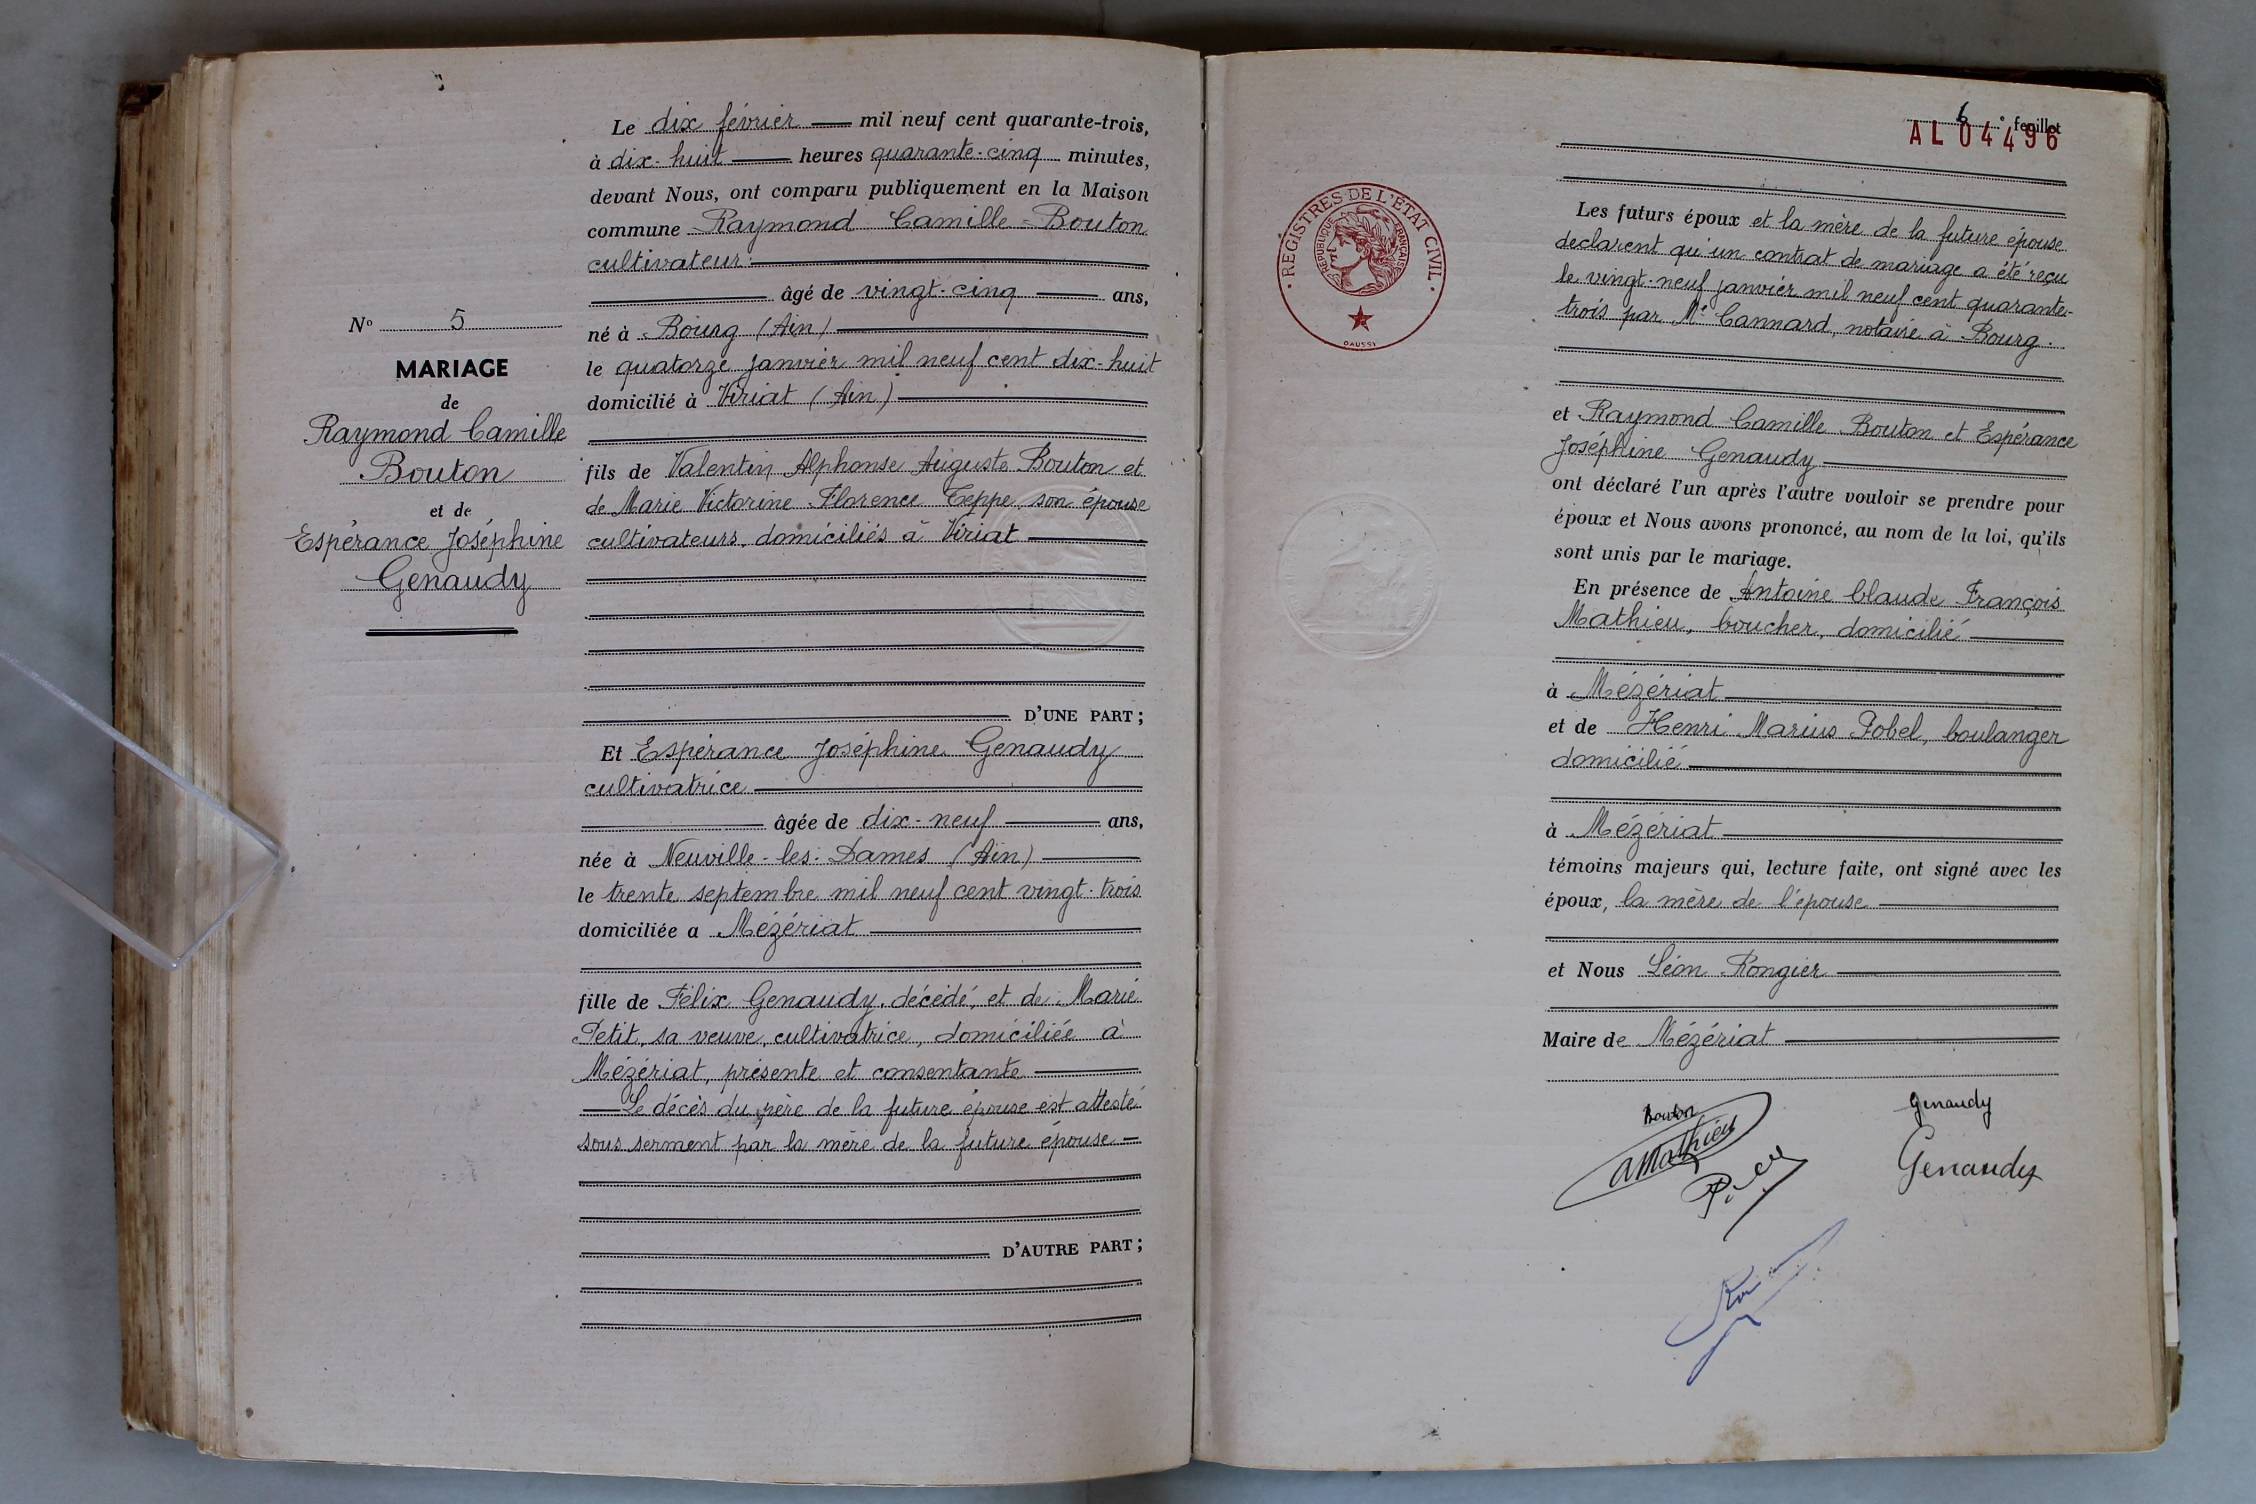 N° 5
MARIAGE
de
Raymond Camille
Bouton
et de
Espérance Joséphine
Genaudy
Le dix février mil neuf cent quarante-trois,
à dix-huit heures quarante-cinq minutes,
devant Nous, ont comparu publiquement en la Maison
commune Raymond Camille Bouton
cultivateur
âgé de vingt-cinq ans,
né à Bourg (Ain)
le quatorze janvier mil neuf cent dix-huit
domicilié à Viriat (Ain)
fils de Valentin Alphonse Auguste Bouton et
de Marie Victorine Florence Teppe, son épouse
cultivateurs, domiciliés à Viriat
D'UNE PART ;
Et Espérance Joséphine Genaudy
cultivatrice
âgée de dix-neuf ans,
née à Neuville-les-Dames (Ain)
le trente septembre mil neuf cent vingt-trois
domiciliée a Mézériat
fille de Félix Genaudy, décédé, et de Marie
Petit, sa veuve, cultivatrice, domiciliée à
Mézériat, présente et consentante
Le décès du père de la future épouse est attesté
sous serment par la mère de la future épouse
D'AUTRE PART ;
6 ° feuillet
AL 04496
REGISTRES DE L'ETAT CIVIL
REPUBLIQUE FRANÇAISE
DAUSSY
Les futurs époux et la mère de la future épouse
declarent qu'un contrat de mariage a été reçu
le vingt-neuf janvier mil neuf cent quarante-
trois par Me Cannard, notaire à Bourg.
et Raymond Camille Bouton et Espérance
Joséphine Genaudy
ont déclaré l'un après l'autre vouloir se prendre pour
époux et Nous avons prononcé, au nom de la loi, qu'ils
sont unis par le mariage.
En présence de Antoine Claude François
Mathieu, boucher, domicilié
à Mézériat
et de Henri Marius Pobel, boulanger
domicilié
à Mézériat
témoins majeurs qui, lecture faite, ont signé avec les
époux, la mère de l'épouse
et Nous Léon Rongier
Maire de Mézériat
Bouton
Genaudy
AMathieu
Genaudy